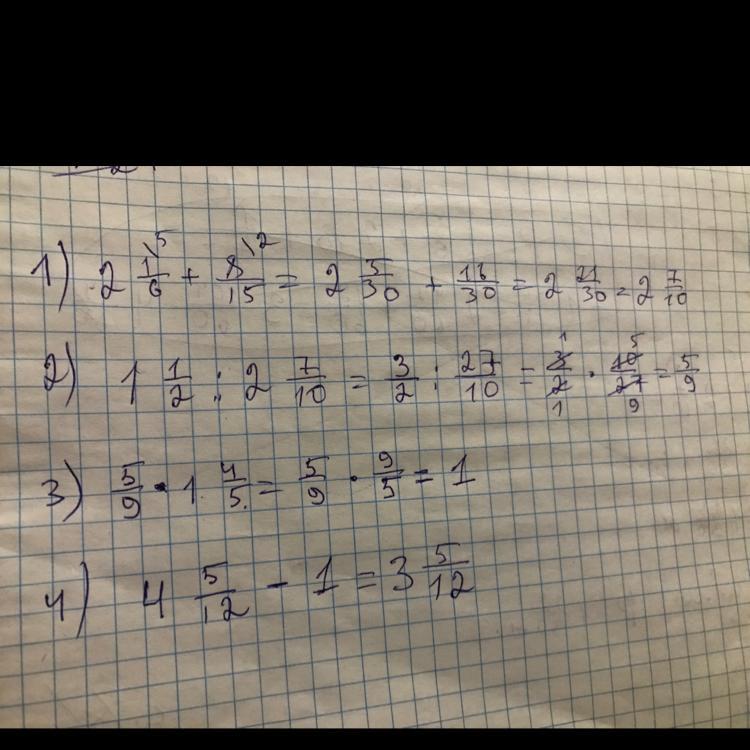 1) 2 1\5/6 + 8\2/15 = 2 5/30 + 16/30 = 2 21/30 = 2 7/10
2) 1 1/2 : 2 7/10 = 3/2 : 27/10 = 3 1/2 1 · 10 5/27 9 = 5/9
3) 5/9 · 1 4/5 = 5/9 · 9/5 = 1
4) 4 5/12 - 1 = 3 5/12